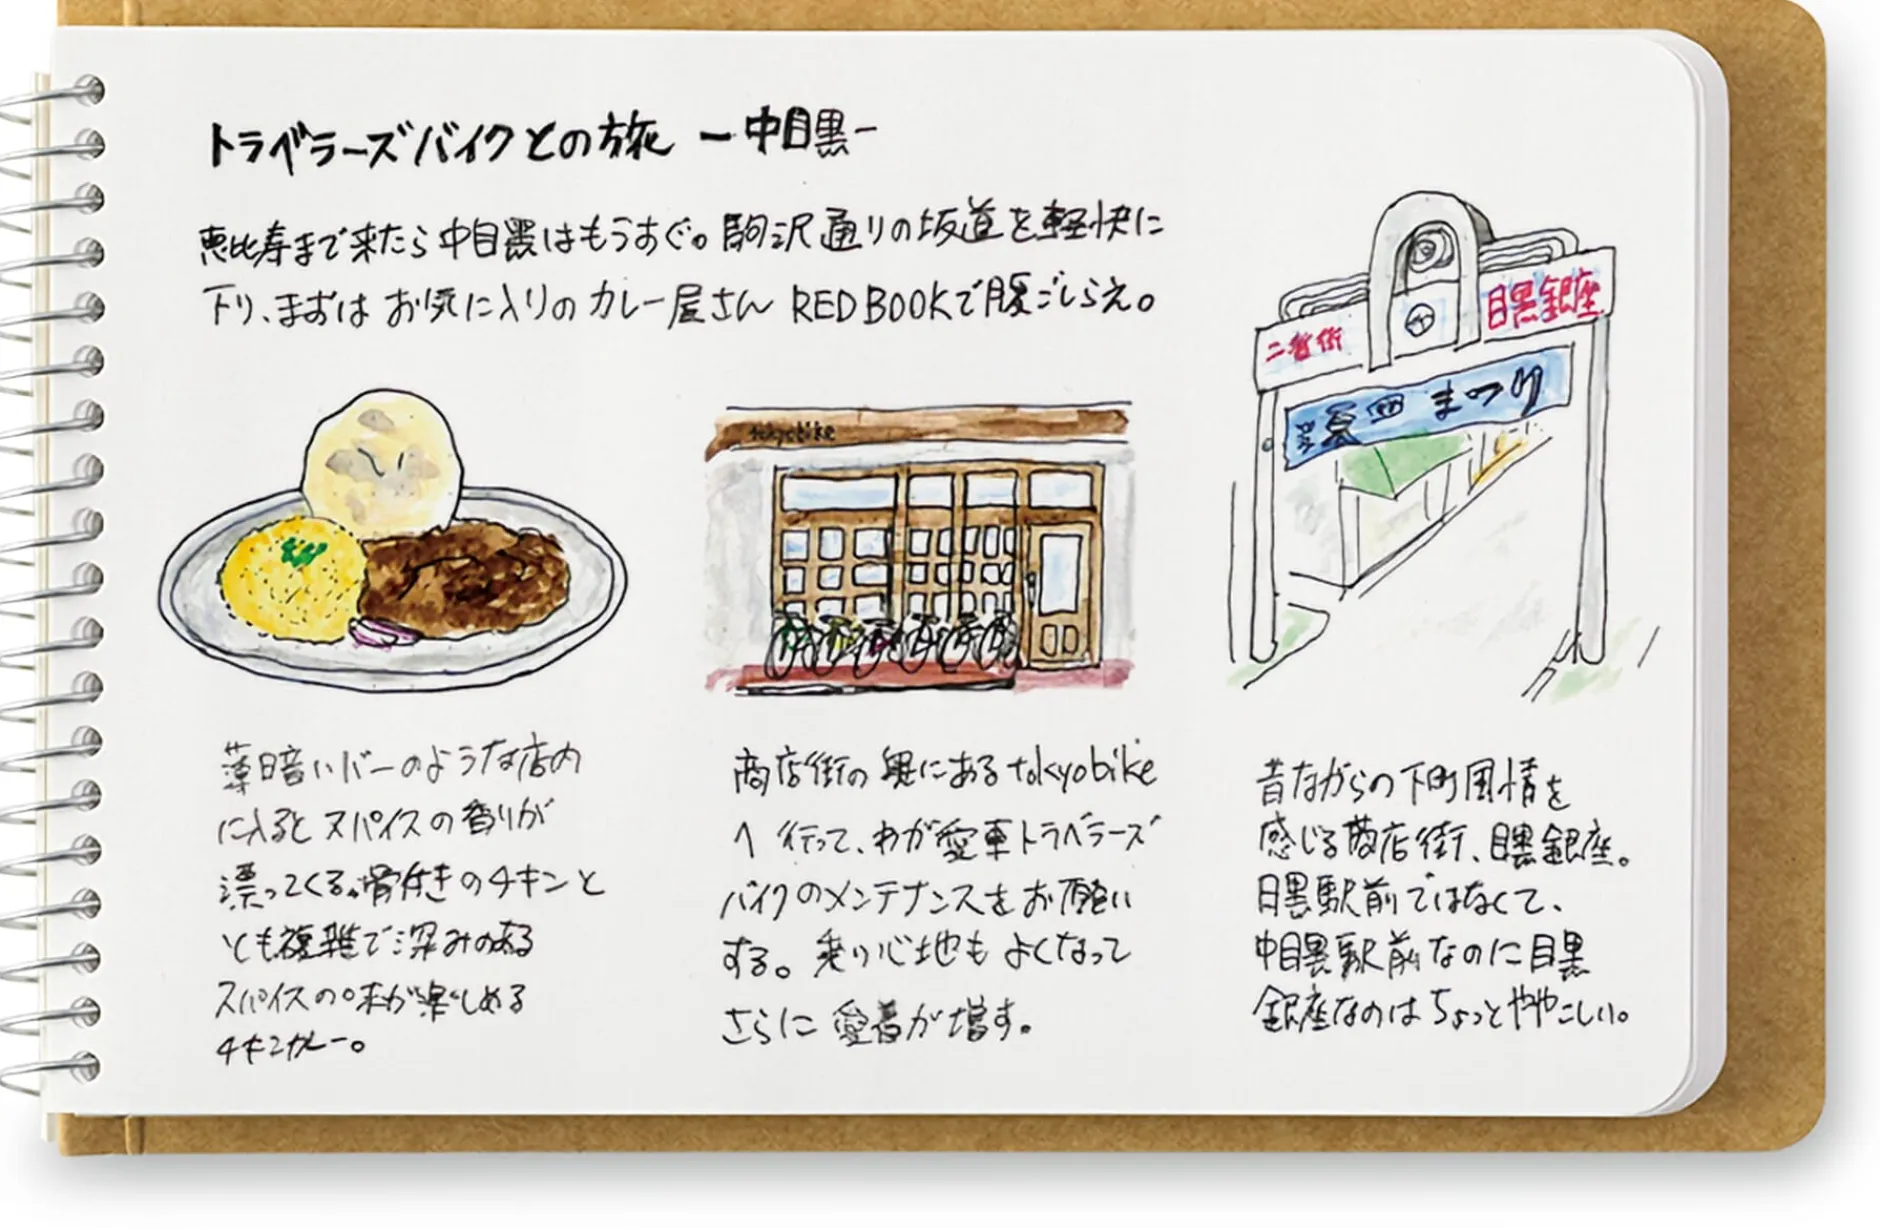 トラベラーズバイクとの旅 ー中目黒ー
恵比寿まで来たら中目黒はもうすぐ。駒沢通りの坂道を軽快に
下り、まずは お気に入りの カレー屋さん RED BOOKで腹ごしらえ。
二番街
目黒銀座
まつり
tokyobike
薄暗いバーのような店内
に入ると スパイスの香りが
漂ってくる。骨付きのチキンと
とも複雑で深みのある
スパイスの味が楽しめる
チキンカレー。
商店街の奥にあるtokyobike
へ 行って、わが愛車トラベラーズ
バイクのメンテナンスをお願い
する。乗り心地も よくなって
さらに 愛着が増す。
昔ながらの下町風情を
感じる商店街、目黒銀座。
目黒駅前ではなくて、
中目黒駅前なのに目黒
銀座なのは ちょっとややこしい。